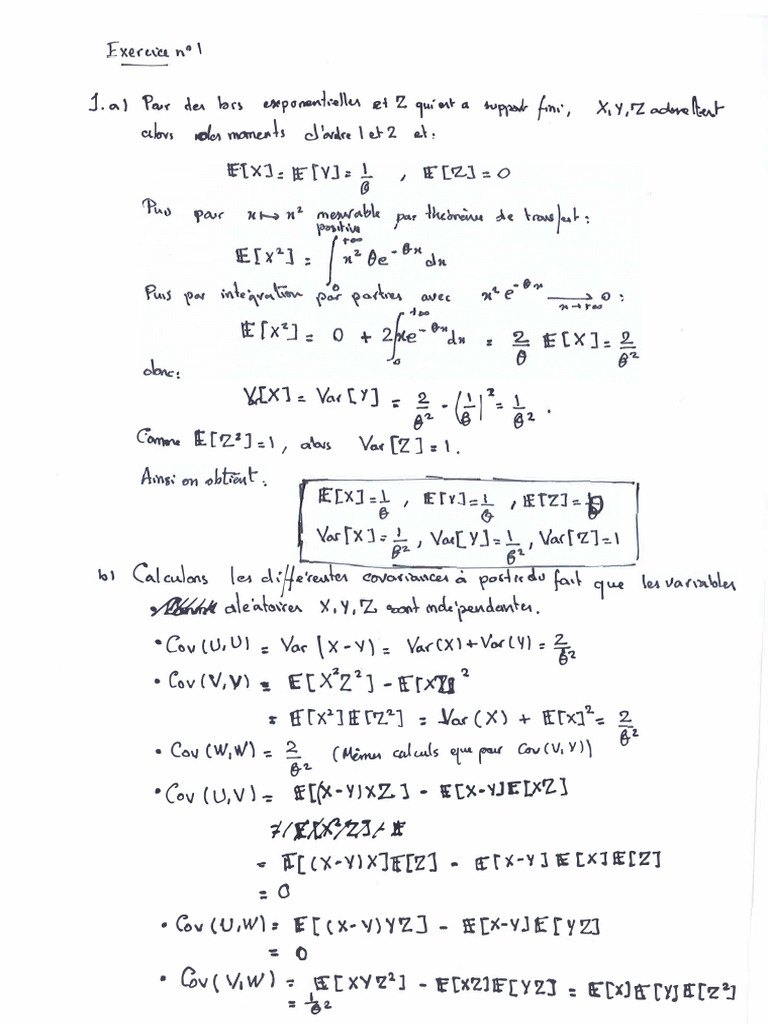 Exercice n°1
1.a) Pour des lois exponentielles et Z qui est a support fini, X, Y, Z admettent
alors des moments d'ordre 1 et 2 et:
E[X] = E[Y] = 1/θ , E[Z] = 0
Puis pour x ↦ x² mesurable positive par théorème de transfert :
E[X²] = ∫₀^{+∞} x² θe^{-θx} dx
Puis par intégration par parties avec x² e^{-θx} ⟶_{x→+∞} 0 :
E[X²] = 0 + 2∫₀^{+∞} xe^{-θx} dx = 2/θ E[X] = 2/θ²
donc:
V[X] = Var[Y] = 2/θ² - (1/θ)² = 1/θ² .
Comme E[Z²]=1, alors Var[Z]=1.
Ainsi on obtient :
E[X]=1/θ , E[Y]=1/θ , E[Z]=0
Var[X]=1/θ² , Var[Y]=1/θ² , Var[Z]=1
b) Calculons les différentes covariances à partir du fait que les variables
aléatoires X, Y, Z sont indépendantes.
• Cov(U,U) = Var(X-Y) = Var(X)+Var(Y) = 2/θ²
• Cov(V,V) = E[X²Z²] - E[XZ]²
= E[X²]E[Z²] = Var(X) + E[X]² = 2/θ²
• Cov(W,W) = 2/θ² (Mêmes calculs que pour Cov(V,V))
• Cov(U,V) = E[(X-Y)XZ] - E[X-Y]E[XZ]
= E[(X-Y)X]E[Z] - E[X-Y]E[X]E[Z]
= 0
• Cov(U,W) = E[(X-Y)YZ] - E[X-Y]E[YZ]
= 0
• Cov(V,W) = E[XYZ²] - E[XZ]E[YZ] = E[X]E[Y]E[Z²]
= 1/θ²